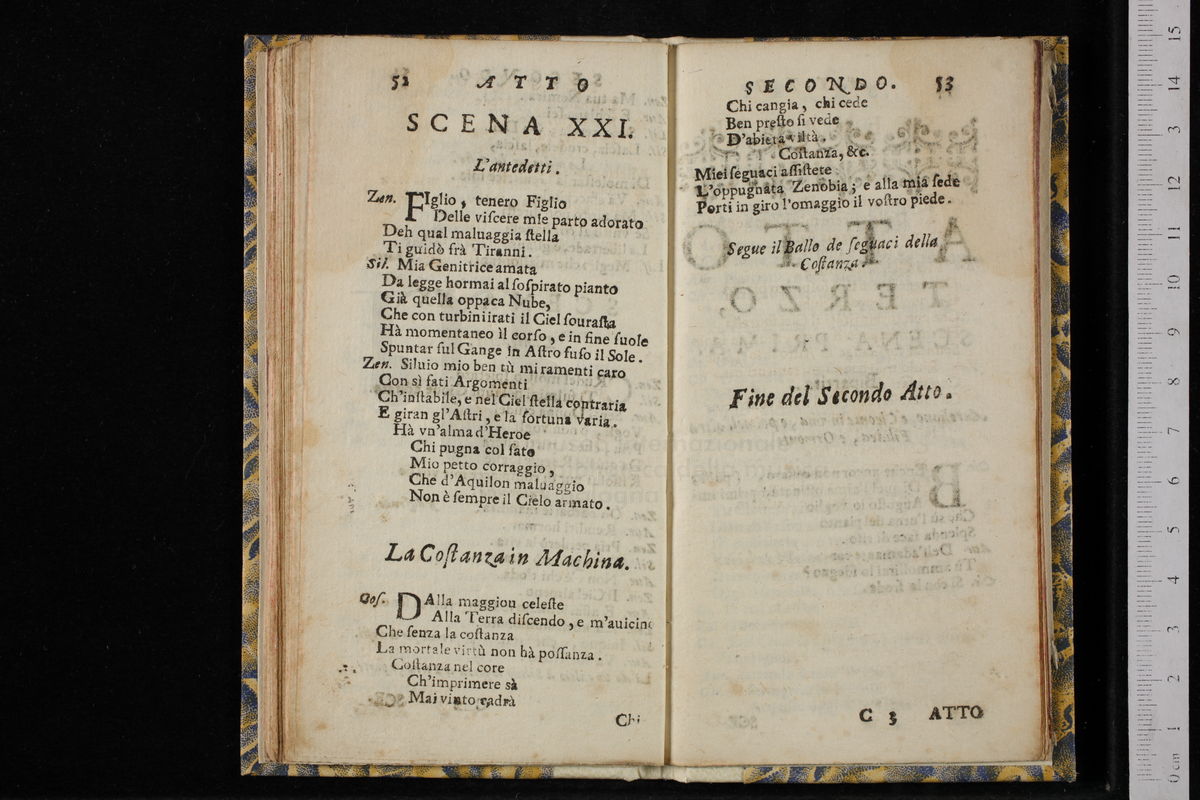 52 ATTO
SCENA XXI.
L'antedetti.
Zen. FIglio, tenero Figlio
Delle viſcere mie parto adorato
Deh qual maluaggia ſtella
Ti guidò frà Tiranni.
Sil. Mia Genitrice amata
Da legge hormai al ſoſpirato pianto
Già quella oppaca Nube,
Che con turbini irati il Ciel ſouraſta
Hà momentaneo il corſo, e in fine ſuole
Spuntar ſul Gange in Aſtro fuſo il Sole.
Zen. Siluio mio ben tù mi ramenti caro
Con sì fati Argomenti
Ch'inſtabile, e nel Ciel ſtella contraria
E giran gl'Aſtri, e la fortuna varia.
Hà vn'alma d'Heroe
Chi pugna col fato
Mio petto corraggio,
Che d'Aquilon maluaggio
Non è ſempre il Cielo armato.
La Coſtanza in Machina.
Coſ. DAlla maggiou celeſte
Alla Terra diſcendo, e m'auicino
Che ſenza la coſtanza
La mortale virtù non hà poſſanza.
Coſtanza nel core
Ch'imprimere sà
Mai vinto cadrà
Chi
SECONDO. 53
Chi cangia, chi cede
Ben preſto ſi vede
D'abieta viltà.
Coſtanza, &c.
Miei ſeguaci aſſiſtete
L'oppugnata Zenobia; e alla mia ſede
Porti in giro l'omaggio il voſtro piede.
Segue il Ballo de ſeguaci della
Coſtanza.
Fine del Secondo Atto.
C 3 ATTO
0 cm 1 2 3 4 5 6 7 8 9 10 11 12 13 14 15